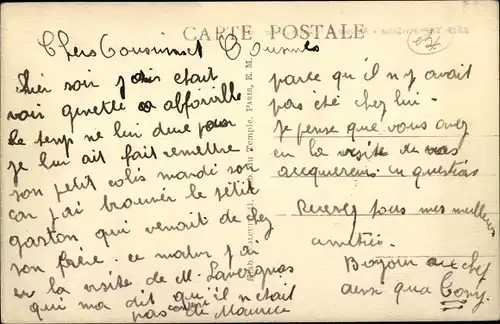 CARTE POSTALE
Chers Cousines et Cousines
hier soir j'ais était
voir ginette a abforville
le temp ne lui dure pas
je lui ait fait remettre
son petit colis mardi soir
car j'ai trouver le petit
gaston qui venait de chez
son frère. ce matin j'ai
eu la visite de M. Lavergnas
qui ma dit qu'il n était
pas de Maurice
parce qu'il n y avait
pas été chez lui.
Je pense que vous avez
eu la visite de vos
acquereurs en question
Recevez tous mes meilleurs
amitiés.
Bonjour au chef
ainsi qua Cony.
du Temple, Paris, E. M.